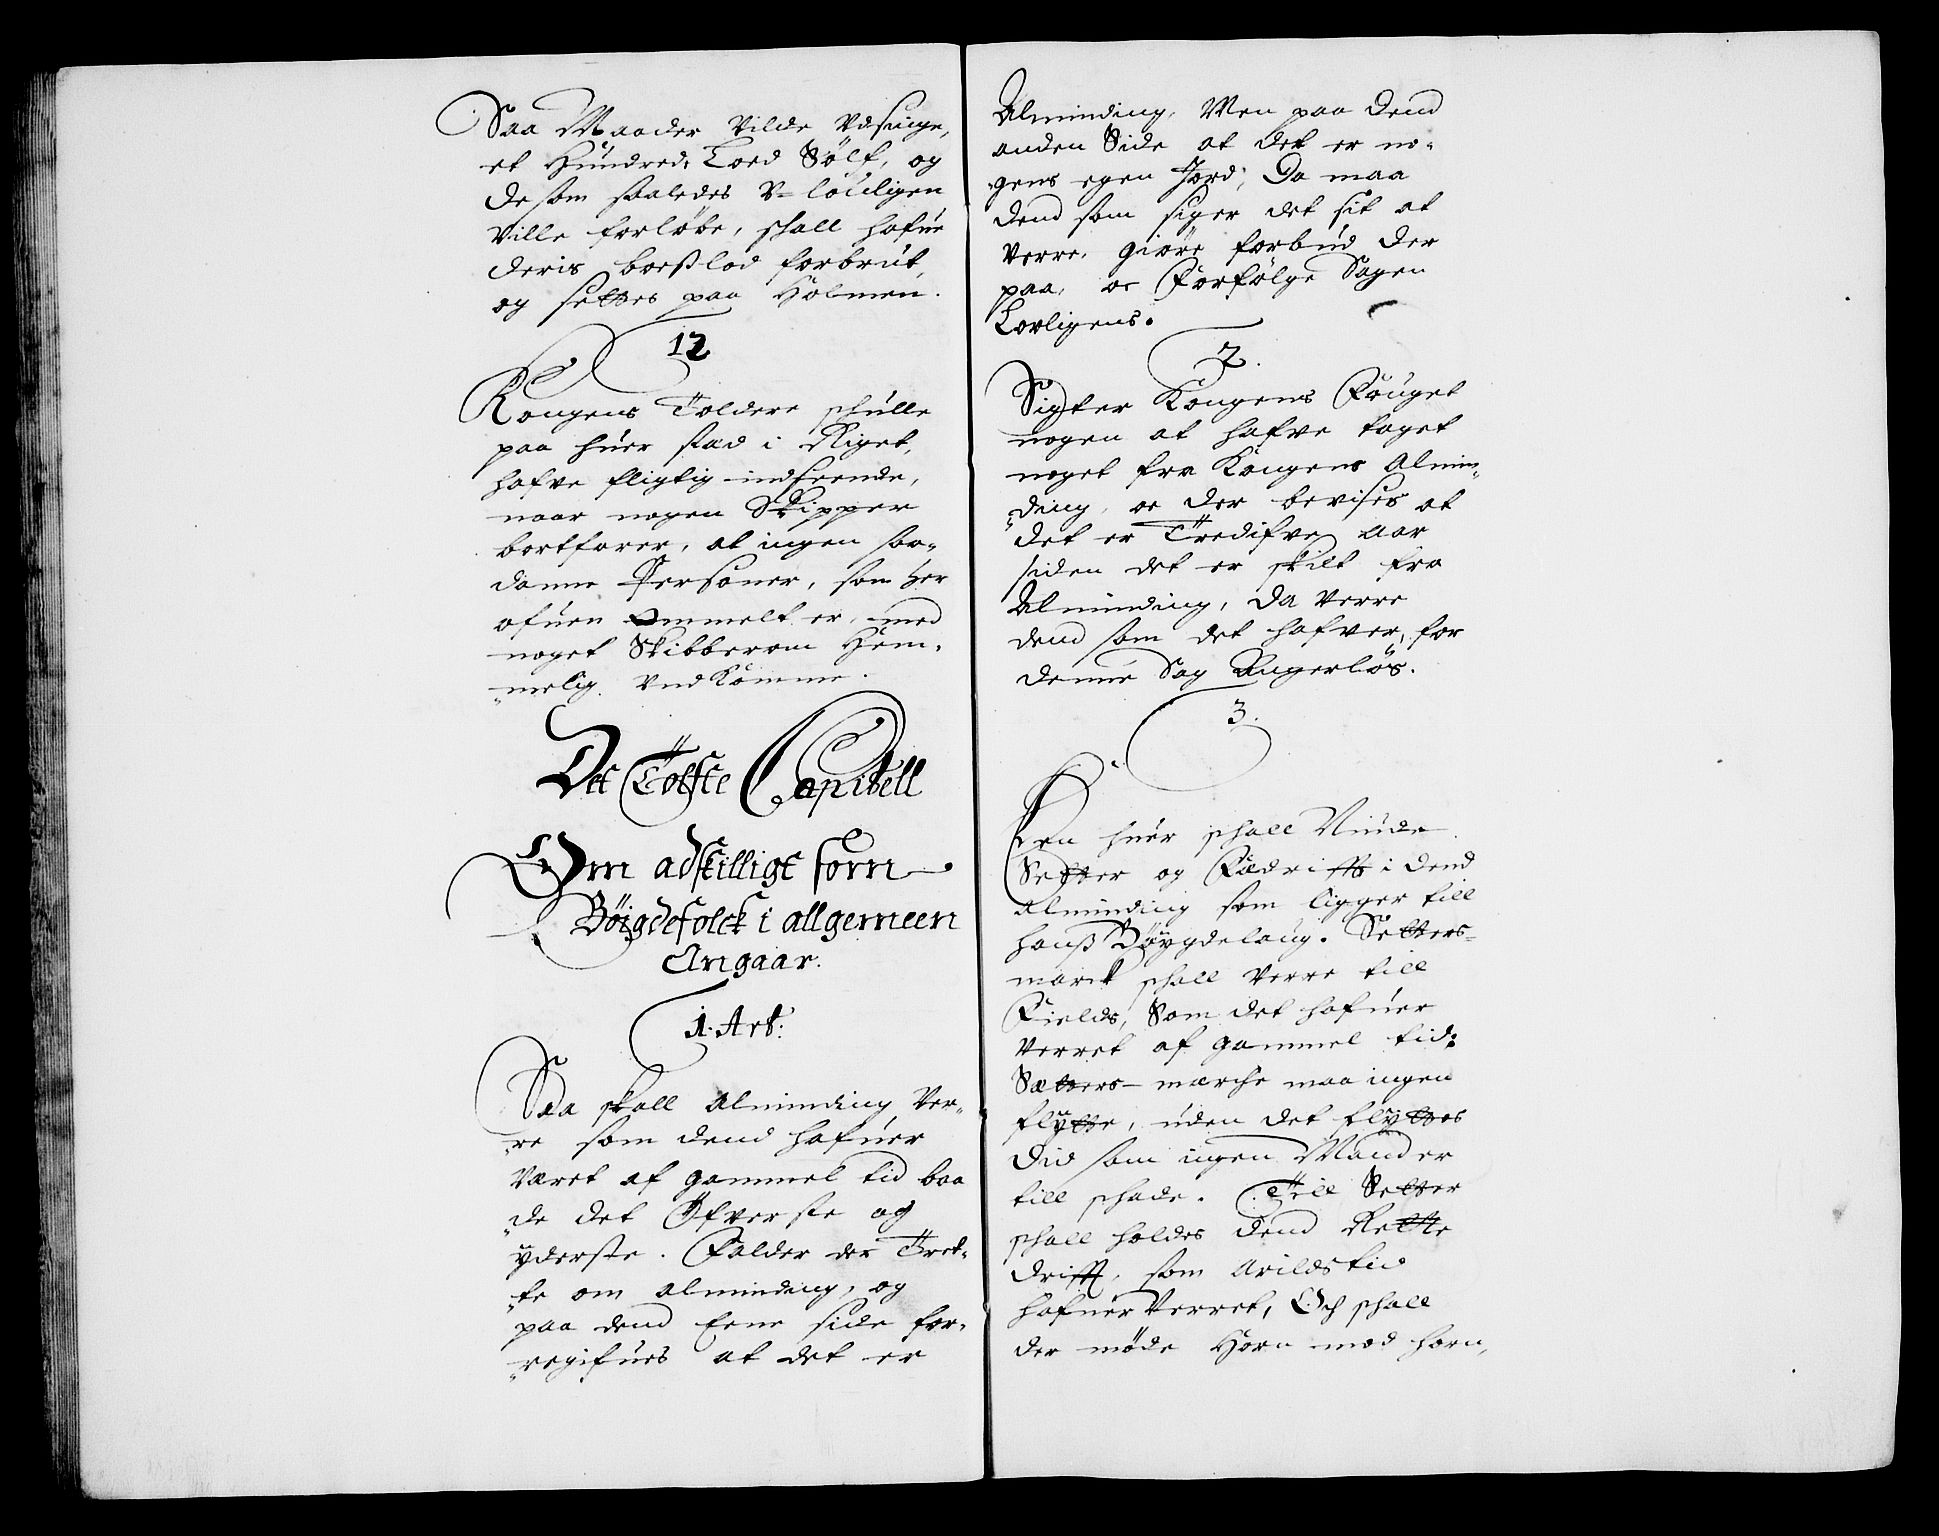 Saa Maader vilde udsuige,
et Hundred: Loed Sölf, og
de som saaledes V-louligen
ville forløbe, schall hafue
deris boeslod forbrut,
og settes paa Holmen.
12
Kongens Toldere schulle
paa huer stad i Riget,
hafve fligtig indseende,
naar nogen Skipper
bortfarer, at ingen saa„
danne Personer, som her
ofuen Ommelt er, med
noget Skibberom Hem„
„melig undkomme.
Det Tolfte Capitell
Om adskilligt som
Böigdefolck i allgemeen
Angaar.
1. Art:
Saa skall Alminding Ver„
„re som dend hafuer
Været af gammel tid baa
„de det Øfverste og
yderste. Falder der Tret„
„te om alminding, og
paa dend Eene side for„
„regifues at det er
Alminding, Men paa Dend
anden Side at det er no„
„gens egen Jord; Da maa
dend som siger det sit at
verre, giöre forbud der
paa, oc Forfölge Sagen
Lovligens.
2.
Sigter Kongens Fouget
nogen at hafve taget
noget fra Kongens Almin„
„ding, oc der bevises at
det er Tredifve aar
siden det er skilt fra
Alminding, da verre
dend som det hafver, for
denne Sag Angerlös.
3.
Een huer schall Niude
Setter og Fædrifft i dend
Alminding som ligger till
hans Böygdelaug. Setters-
marck schall verre till
Fields, Som det hafuer
verret af gammel tid:
Sætters- marche maa ingen
flytte, uden det flyttes
did som ingen Mand er
till schade. Till Setter
schall holdes dend Rette
drifft, som Arilds tid
hafuer Verret, Och schall
der möde Horn mod horn,